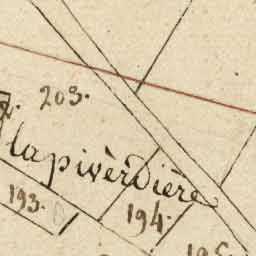 203.
la pivèrdière
193.
194.